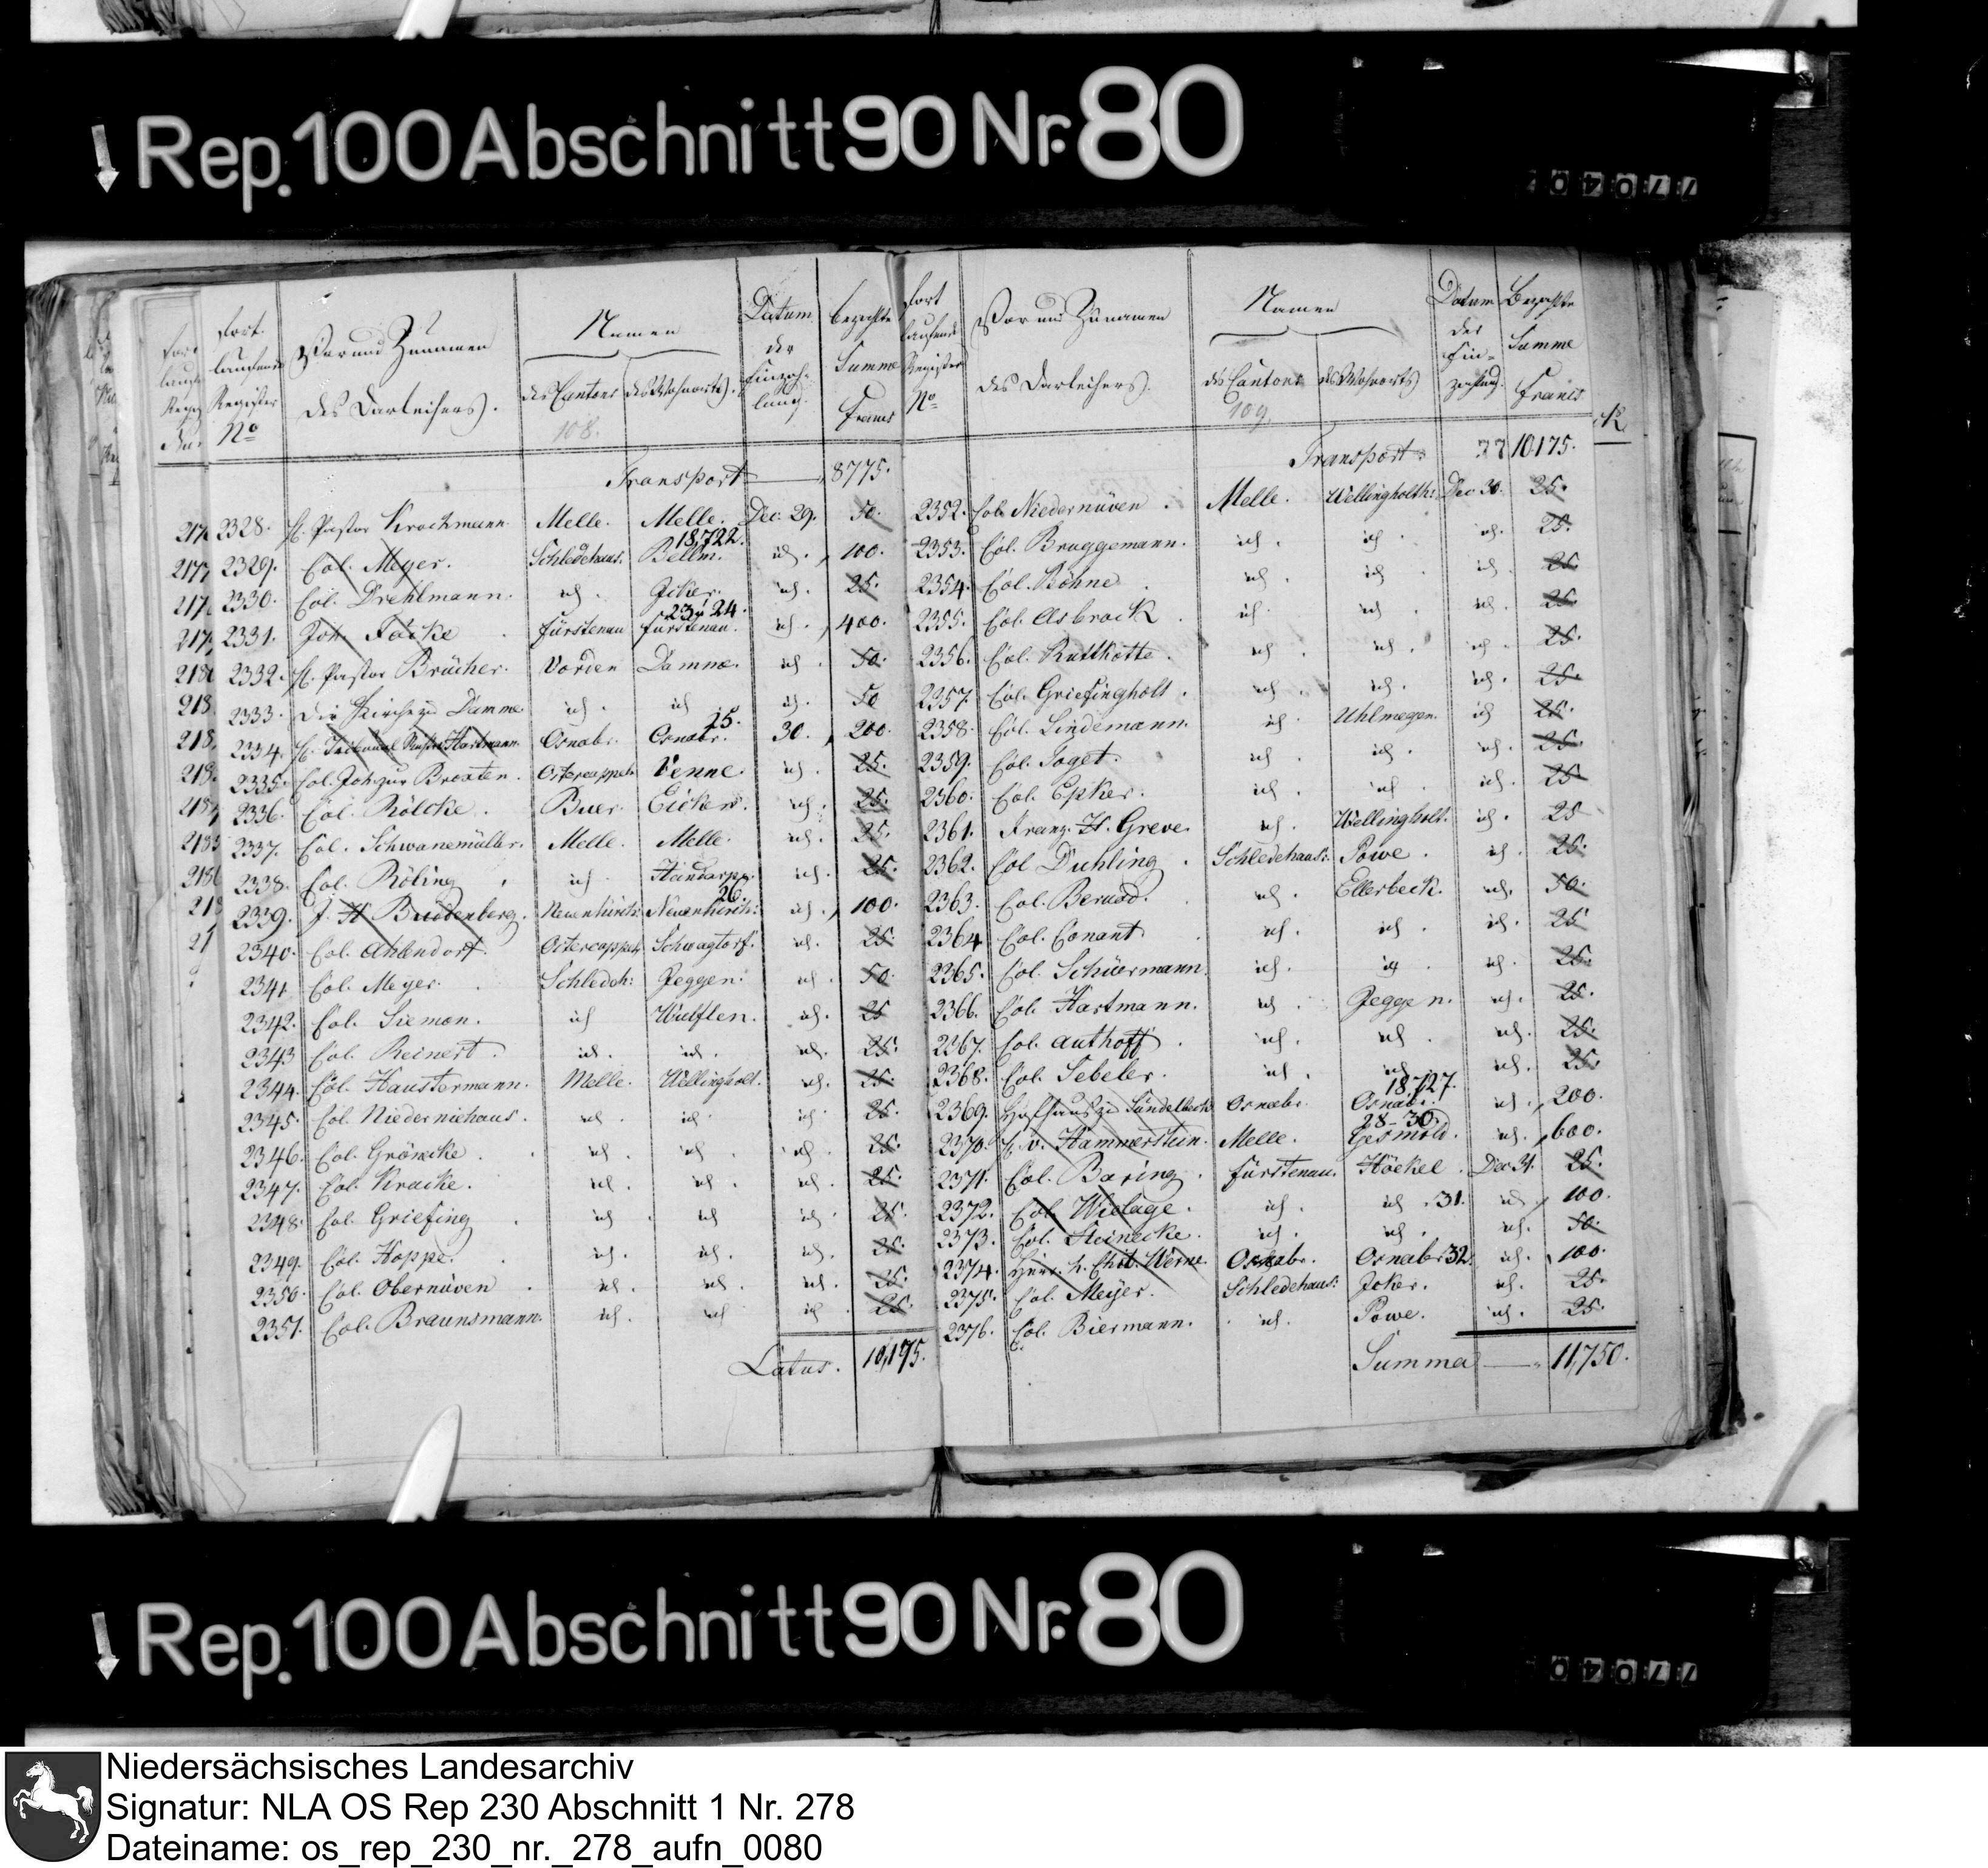 Rep. 100 Abschnitt 90 Nr. 80
Fort- laufende Register No Vor und Zunamen des Darleihers. Namen des Cantons des Wohnorts. Datum der Einzahlung. bezahlte Summe Francs
108.
Transport 8775.
2328. H. Pastor Krochmann Melle. Melle. Dec. 29. 50.
18,722.
2329. Col. Meyer. Schledehaus. Bellm. id. 100.
2330. Col. Drehlmann. id. Jcker. id. 25.
23 u 24.
2331. Joh. Facke Fürstenau Fürstenau. id. 400.
2332. H. Pastor Brücher. Vörden Damme. id. 50.
2333. Die Kirche zu Damme id. id id. 50
25.
2334. H. Tribunal Hartmann. Osnabr. Osnabr. 30. 200.
2335. Col. Joh. zur Broxten. Ostercappeln Venne. id. 25.
2336. Col. Rölcke. Buer. Eicken. id. 25.
2337. Col. Schwanemüller. Melle. Melle. id. 25.
2338. Col. Röling id. id. 25.
26.
2339. J. H. Buddenberg. Neuenkirch: Neuenkirch: id. 100.
2340. Col. Ahlendorf. Ostercappeln Schwagtorf. id. 25.
2341. Col. Meyer. Schledeh: Jeggen. id 50.
2342. Col. Siemon. id Wulften. id. 25
2343 Col. Reinert. id. id. id. 25.
2344. Col. Haustermann. Melle. Wellingholt. id. 25.
2345. Col. Niederniehaus. id. id. id. 25.
2346. Col. Grönecke id. id. id. 25.
2347. Col. Kracke. id. id. id. 25.
2348. Col. Griefing id id id. 25.
2349. Col. Hoppe. id. id. id. 25.
2350. Col. Obernüven id. id. id. 25.
2351. Col. Braunsmann. id. id id. 25.
Latus. 10,175.
Fort laufende Register No Vor und Zunamen des Darleihers. Namen des Cantons des Wohnorts Datum der Einzahlung. Bezahlte Summe Francs
109.
Transport. 10175.
2352. Col. Niedernüven. Melle. Wellingholth: Dec 30. 25.
2353. Col. Bruggemann. id. id. id. 25.
2354. Col. Köhne id. id. id. 25.
2355. Col. Asbrock id. id. id. 25.
2356. Col. Rullkötte. id. id. id. 25.
2357. Col. Griefingholt. id. id. id. 25.
2358. Col. Lindemann. id. Uhlmegen. id 25.
2359. Col. Soget. id id. id. 25.
2360. Col. Epker. id. id. id. 25
2361. Franz H. Greve. id. Wellingholt. id. 25
2362. Col Duhling. Schledehaus: Powe. id. 25.
2363. Col. Berudd. id. Ellerbeck. id. 50.
2364 Col. Conant id. id. id. 25
2365. Col. Schüermann. id. id. id. 25.
2366. Col. Hartmann. id. Jeggen. id. 25.
2367. Col. Authoff. id. id. id. 25.
2368. Col. Sebeler. id. id. id. 25.
18,727.
2369. Osnabr. Osnabr. id. 200.
28-30
2370. H. v. Hammerstein. Melle. Gesmold. id. 600.
2371. Col. Baring. Fürstenau. Höckel. Dec 31. 25.
2372. Col. Wielage. id. id. 31. id. 100.
2373. Col. Steinecke. id. id. id. 50.
2374. Osnabr. Osnabr 32. id. 100.
2375. Col. Meyer. Schledehaus: Jcker. id. 25.
2376. Col. Biermann. id. Powe. id. 25.
Summa 11,750.
Rep. 100 Abschnitt 90 Nr. 80
Niedersächsisches Landesarchiv
Signatur: NLA OS Rep 230 Abschnitt 1 Nr. 278
Dateiname: os_rep_230_nr._278_aufn_0080